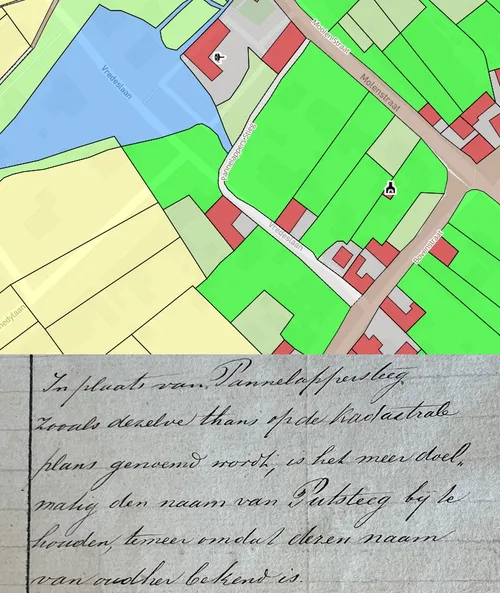 Molenstraat
Vredeslaan
Molenstraat
Pannelappersteeg
Vredeslaan
Bovenstraat
In plaats van Pannelappersteeg
Zooals dezelve thans op de Kadastrale
plans genoemd wordt, is het meer doel„
matig den naam van Putsteeg bij te
houden, temeer omdat dezen naam
van oudher bekend is.